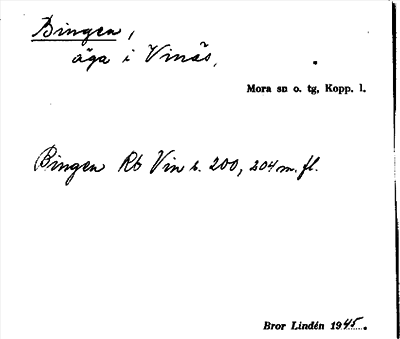 Bingen,
äga i Vinäs,
Mora sn o. tg, Kopp. l.
Bingen Rb Vin s. 200, 204 m. fl.
Bror Lindén 1945.